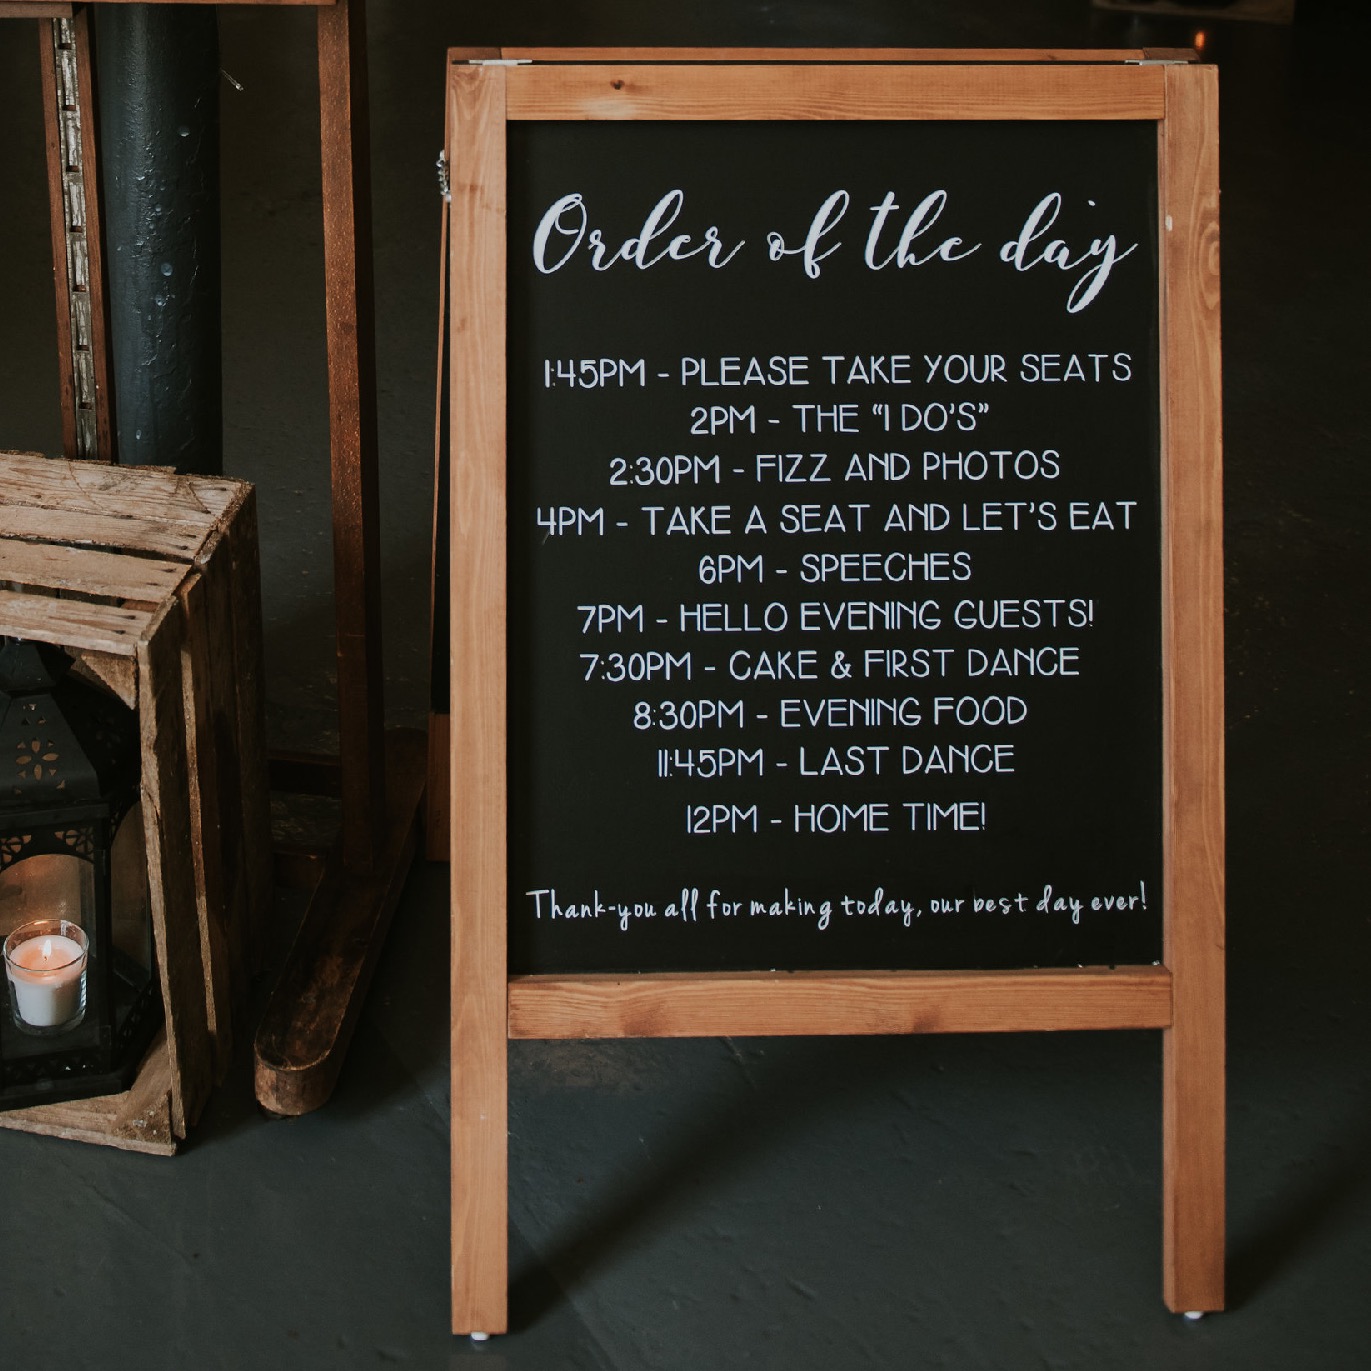 Order of the day
1:45PM - PLEASE TAKE YOUR SEATS
2PM - THE “I DO’S”
2:30PM - FIZZ AND PHOTOS
4PM - TAKE A SEAT AND LET’S EAT
6PM - SPEECHES
7PM - HELLO EVENING GUESTS!
7:30PM - CAKE & FIRST DANCE
8:30PM - EVENING FOOD
11:45PM - LAST DANCE
12PM - HOME TIME!
Thank-you all for making today, our best day ever!